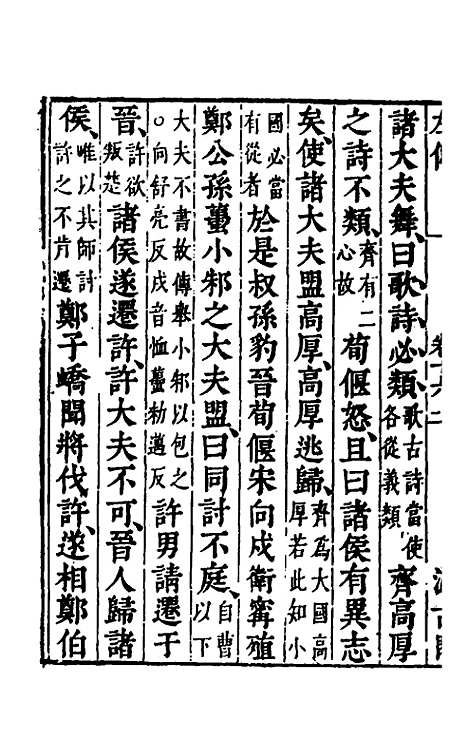 諸大夫舞、曰歌詩必類、歌古詩當使各從義類齊高厚
之詩不類、齊有二心故荀偃怒、且曰諸侯有異志
矣、使諸大夫盟高厚、高厚逃歸、齊爲大國高厚若此知小
國必當有從者於是叔孫豹晉荀偃宋向戌衞甯殖
鄭公孫蠆小邾之大夫盟、曰同討不庭、自曹以下
大夫不書故傳舉小邾以包之○向舒亮反戌音恤蠆勑邁反許男請遷于
晉、許欲叛楚諸侯遂遷許、許大夫不可、晉人歸諸
侯、唯以其師討許之不肯遷鄭子蟜聞將伐許、遂相鄭伯